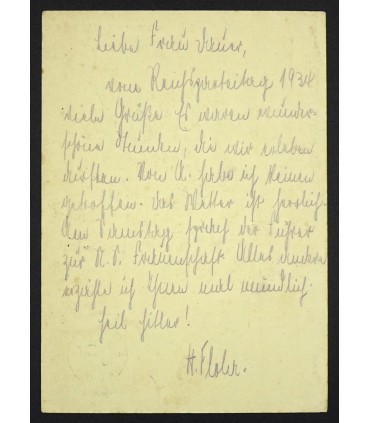 Liebe Frau Bauer,
vom Reichsparteitag 1934
viele Grüße. Es waren wunder-
schöne Stunden, die wir erleben
durften. Von A. habe ich keinen
getroffen. Das Wetter ist herrlich.
Am Samstag sprach der Führer
zur N. S. Frauenschaft. Alles andere
erzähle ich Ihnen mal mündlich.
Heil Hitler!
H.